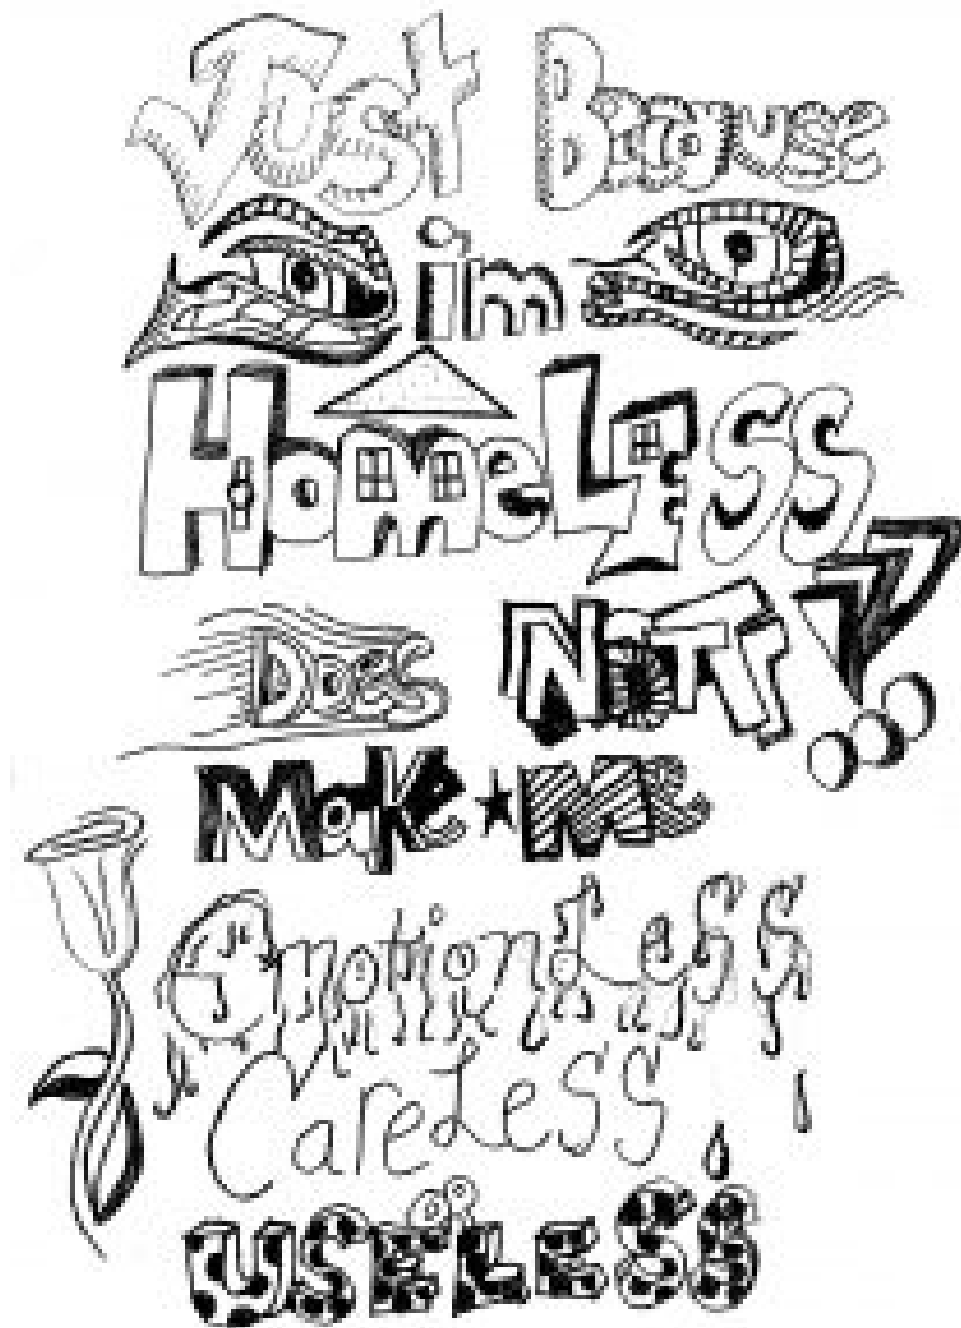 Just Because
i'm
HomeLESS
Does NOT!!
Make Me
EmotionLess
CareLess
or
USELESS